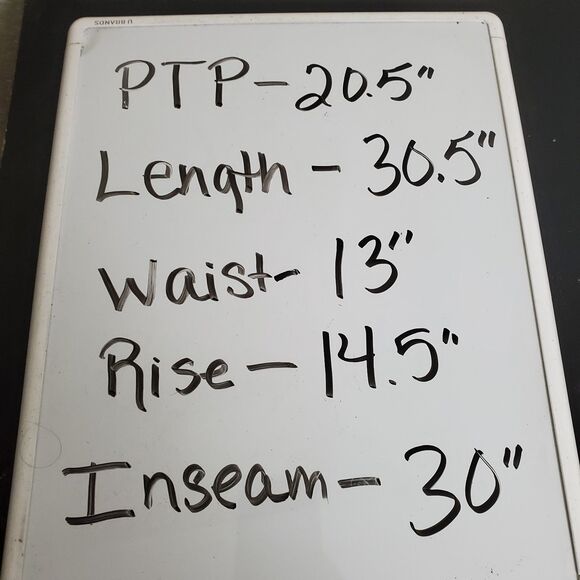 U BRANDS
PTP - 20.5"
Length - 30.5"
Waist - 13"
Rise - 14.5"
Inseam - 30"